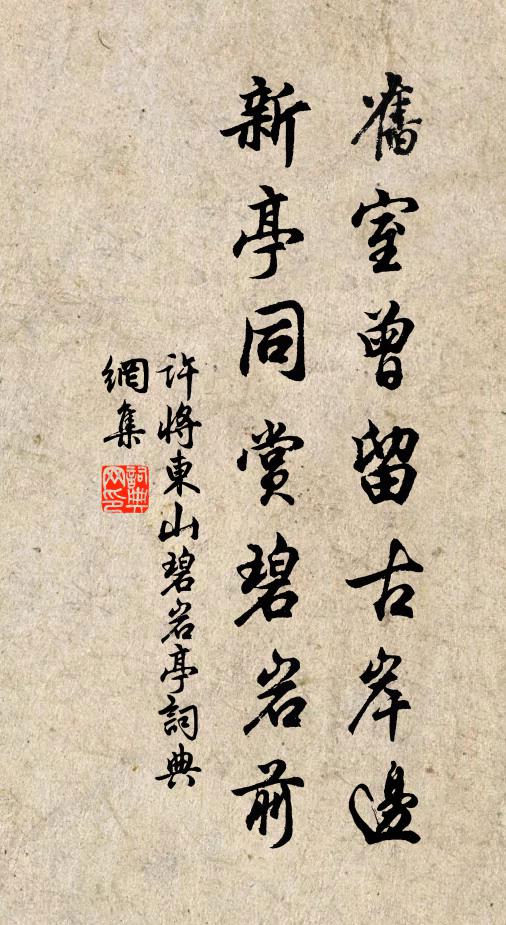 舊室曾留古岸邊
新亭同賞碧岩前
許將東山碧岩亭詞典
網集
詞典網印